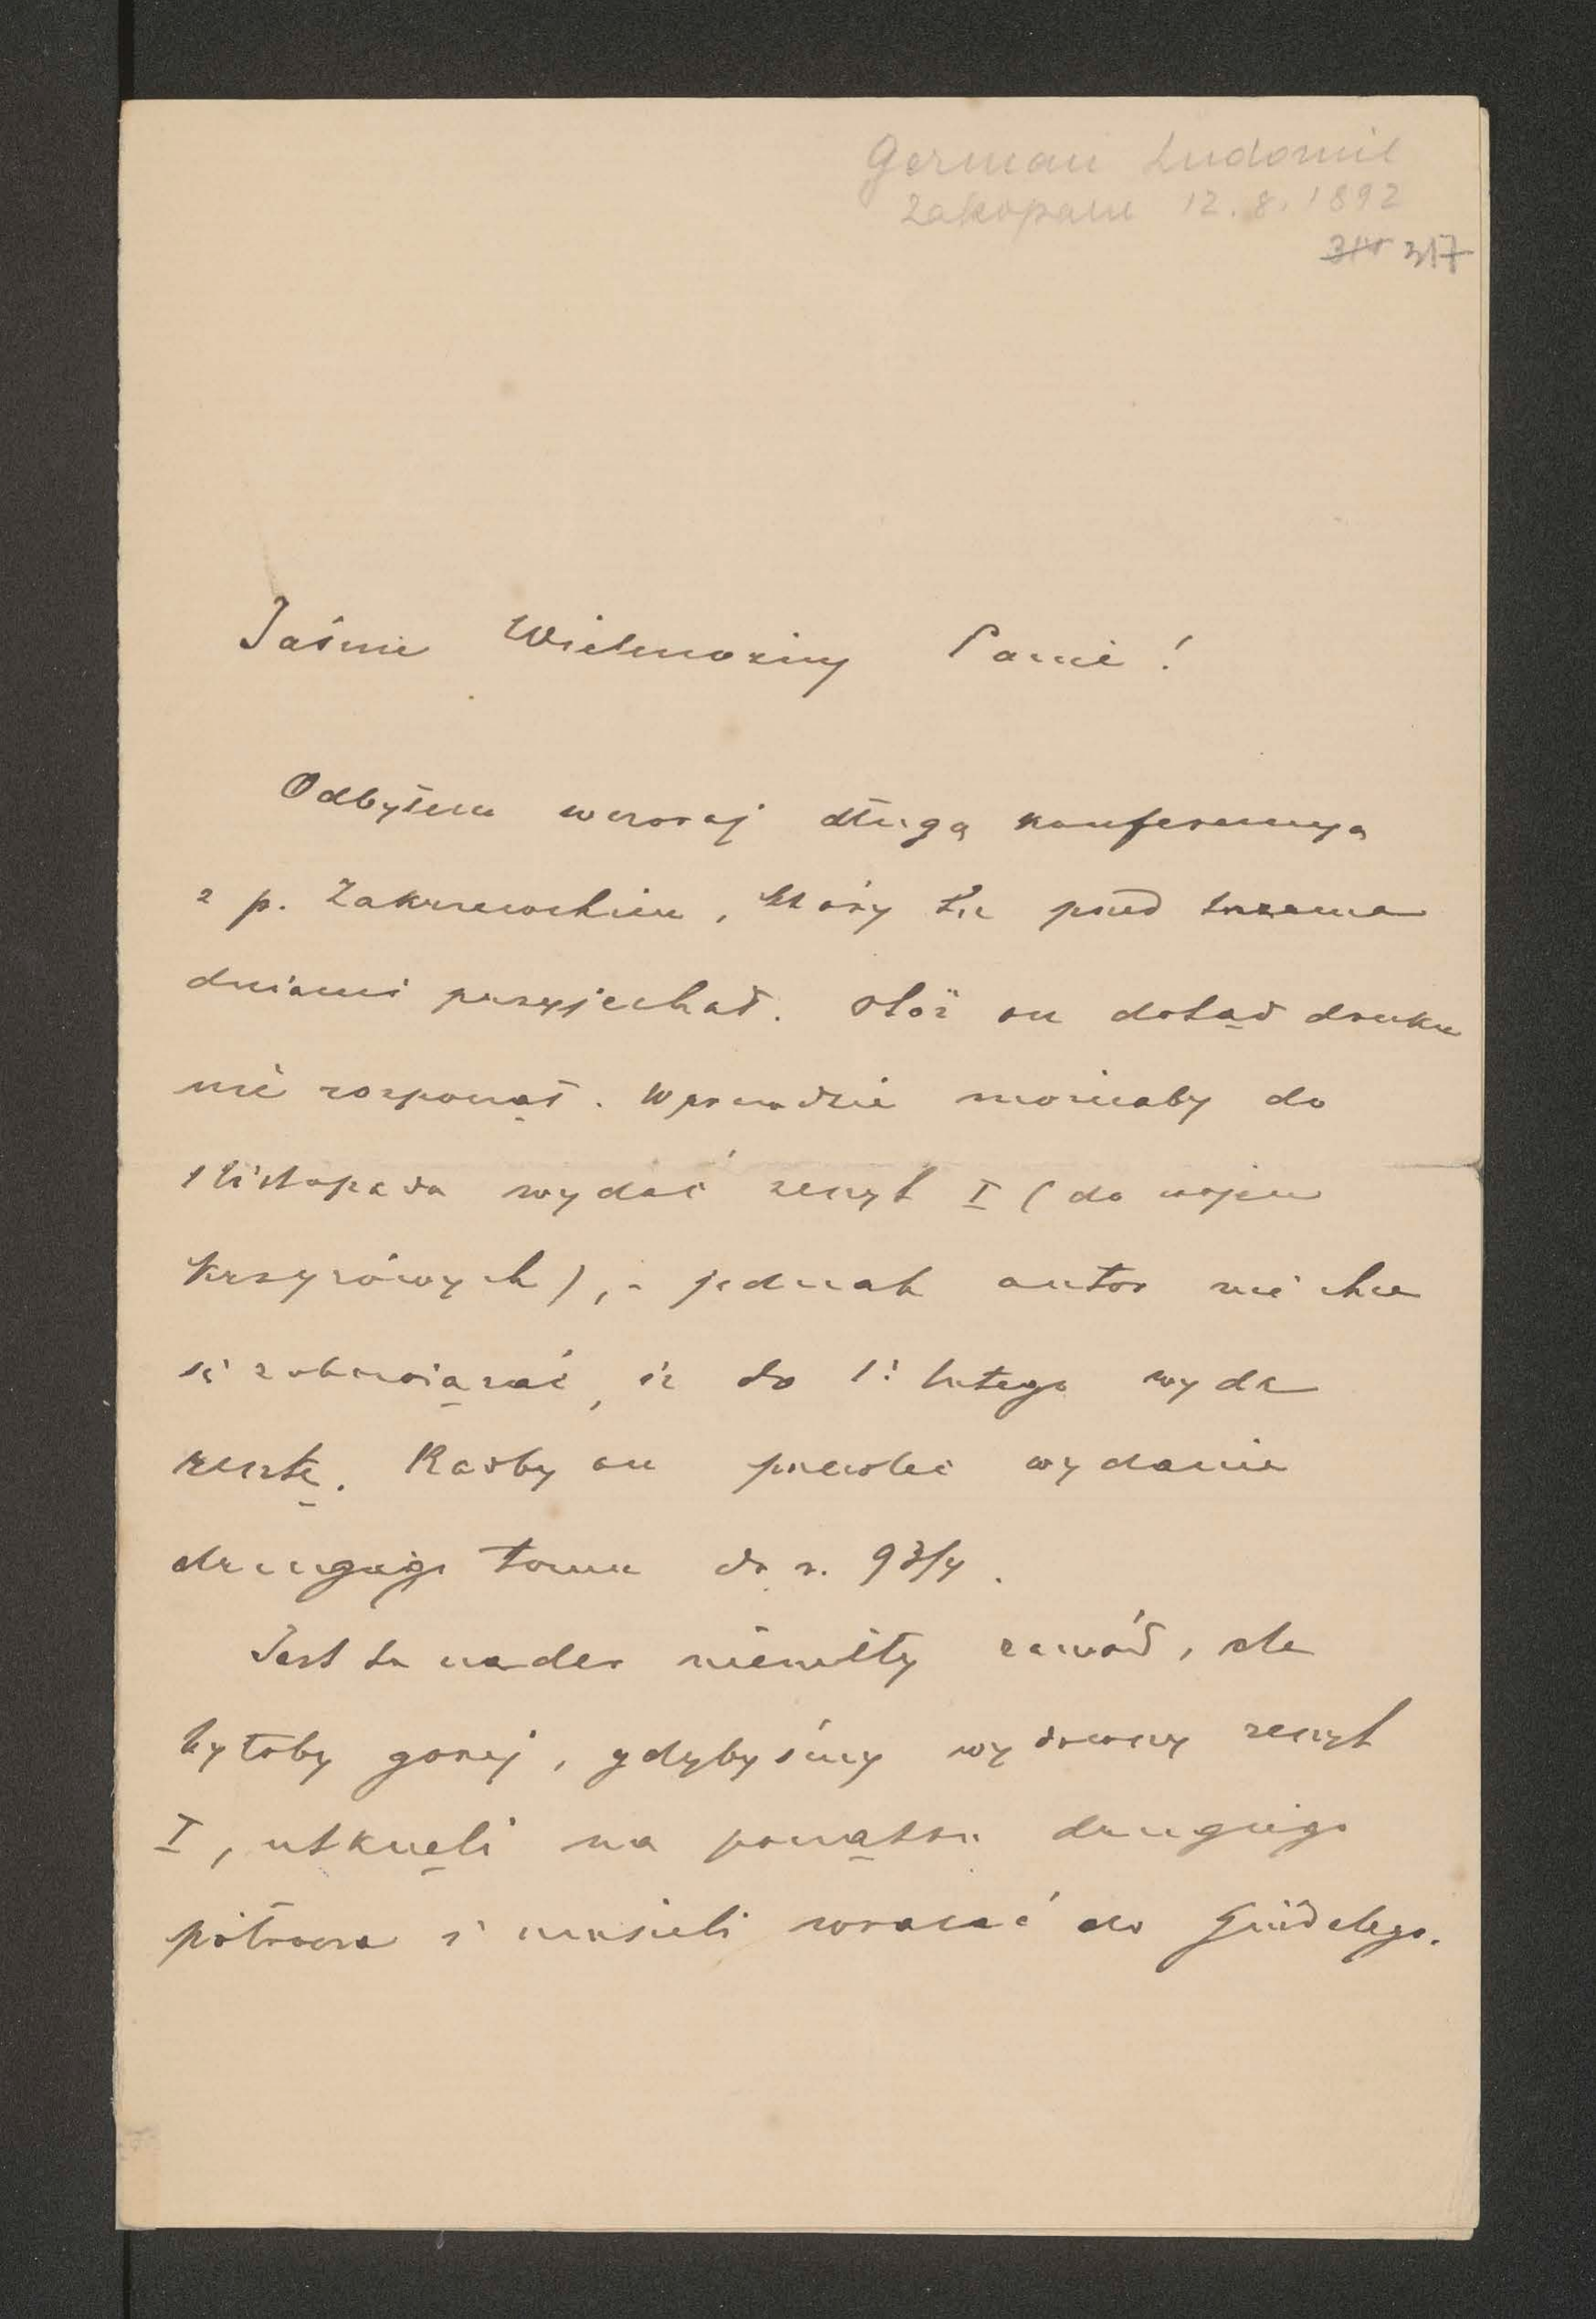 German Ludomił
Zakopane 12.8.1892
317
Jaśnie Wielmożny Panie!
Odbyłem wczoraj długą konferencyą
z p. Zakrzewskim, który tu przed trzema
dniami przyjechał. Otóż on dotąd druku
nie rozpoczął. Wprawdzie możnaby do
1 listopada wydać zeszyt I (do wojen
krzyżowych), - jednak autor nie chce
się zobowiązać, iż do 1. lutego wyda
resztę. Radby on przewlec wydanie
drugiego tomu do r. 93/4.
Jest to nader niemiły zawód, ale
byłoby gorzej, gdybyśmy wydawszy zeszyt
I, utknęli na początku drugiego
półrocza i musieli wracać do Gindelego.